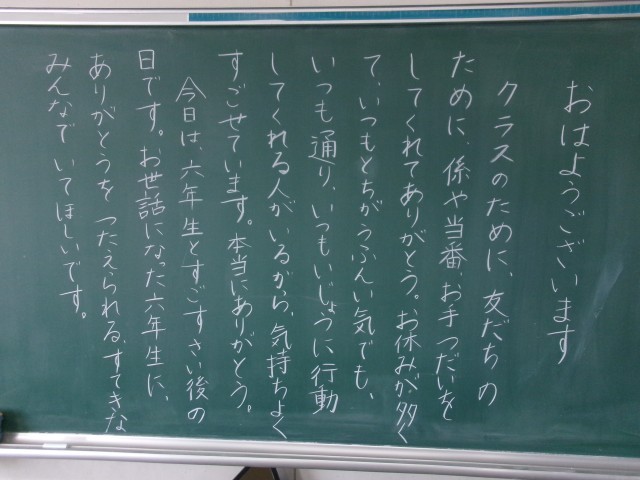 おはようございます
クラスのために、友だちの
ために、係や当番、お手つだいを
してくれてありがとう。お休みが多く
て、いつもとちがうふんい気でも、
いつも通り、いつもいじょうに行動
してくれる人がいるから、気持ちよく
すごせています。本当にありがとう。
今日は、六年生とすごすさい後の
日です。お世話になった六年生に、
ありがとうを つたえられる、すてきな
みんなで いてほしいです。